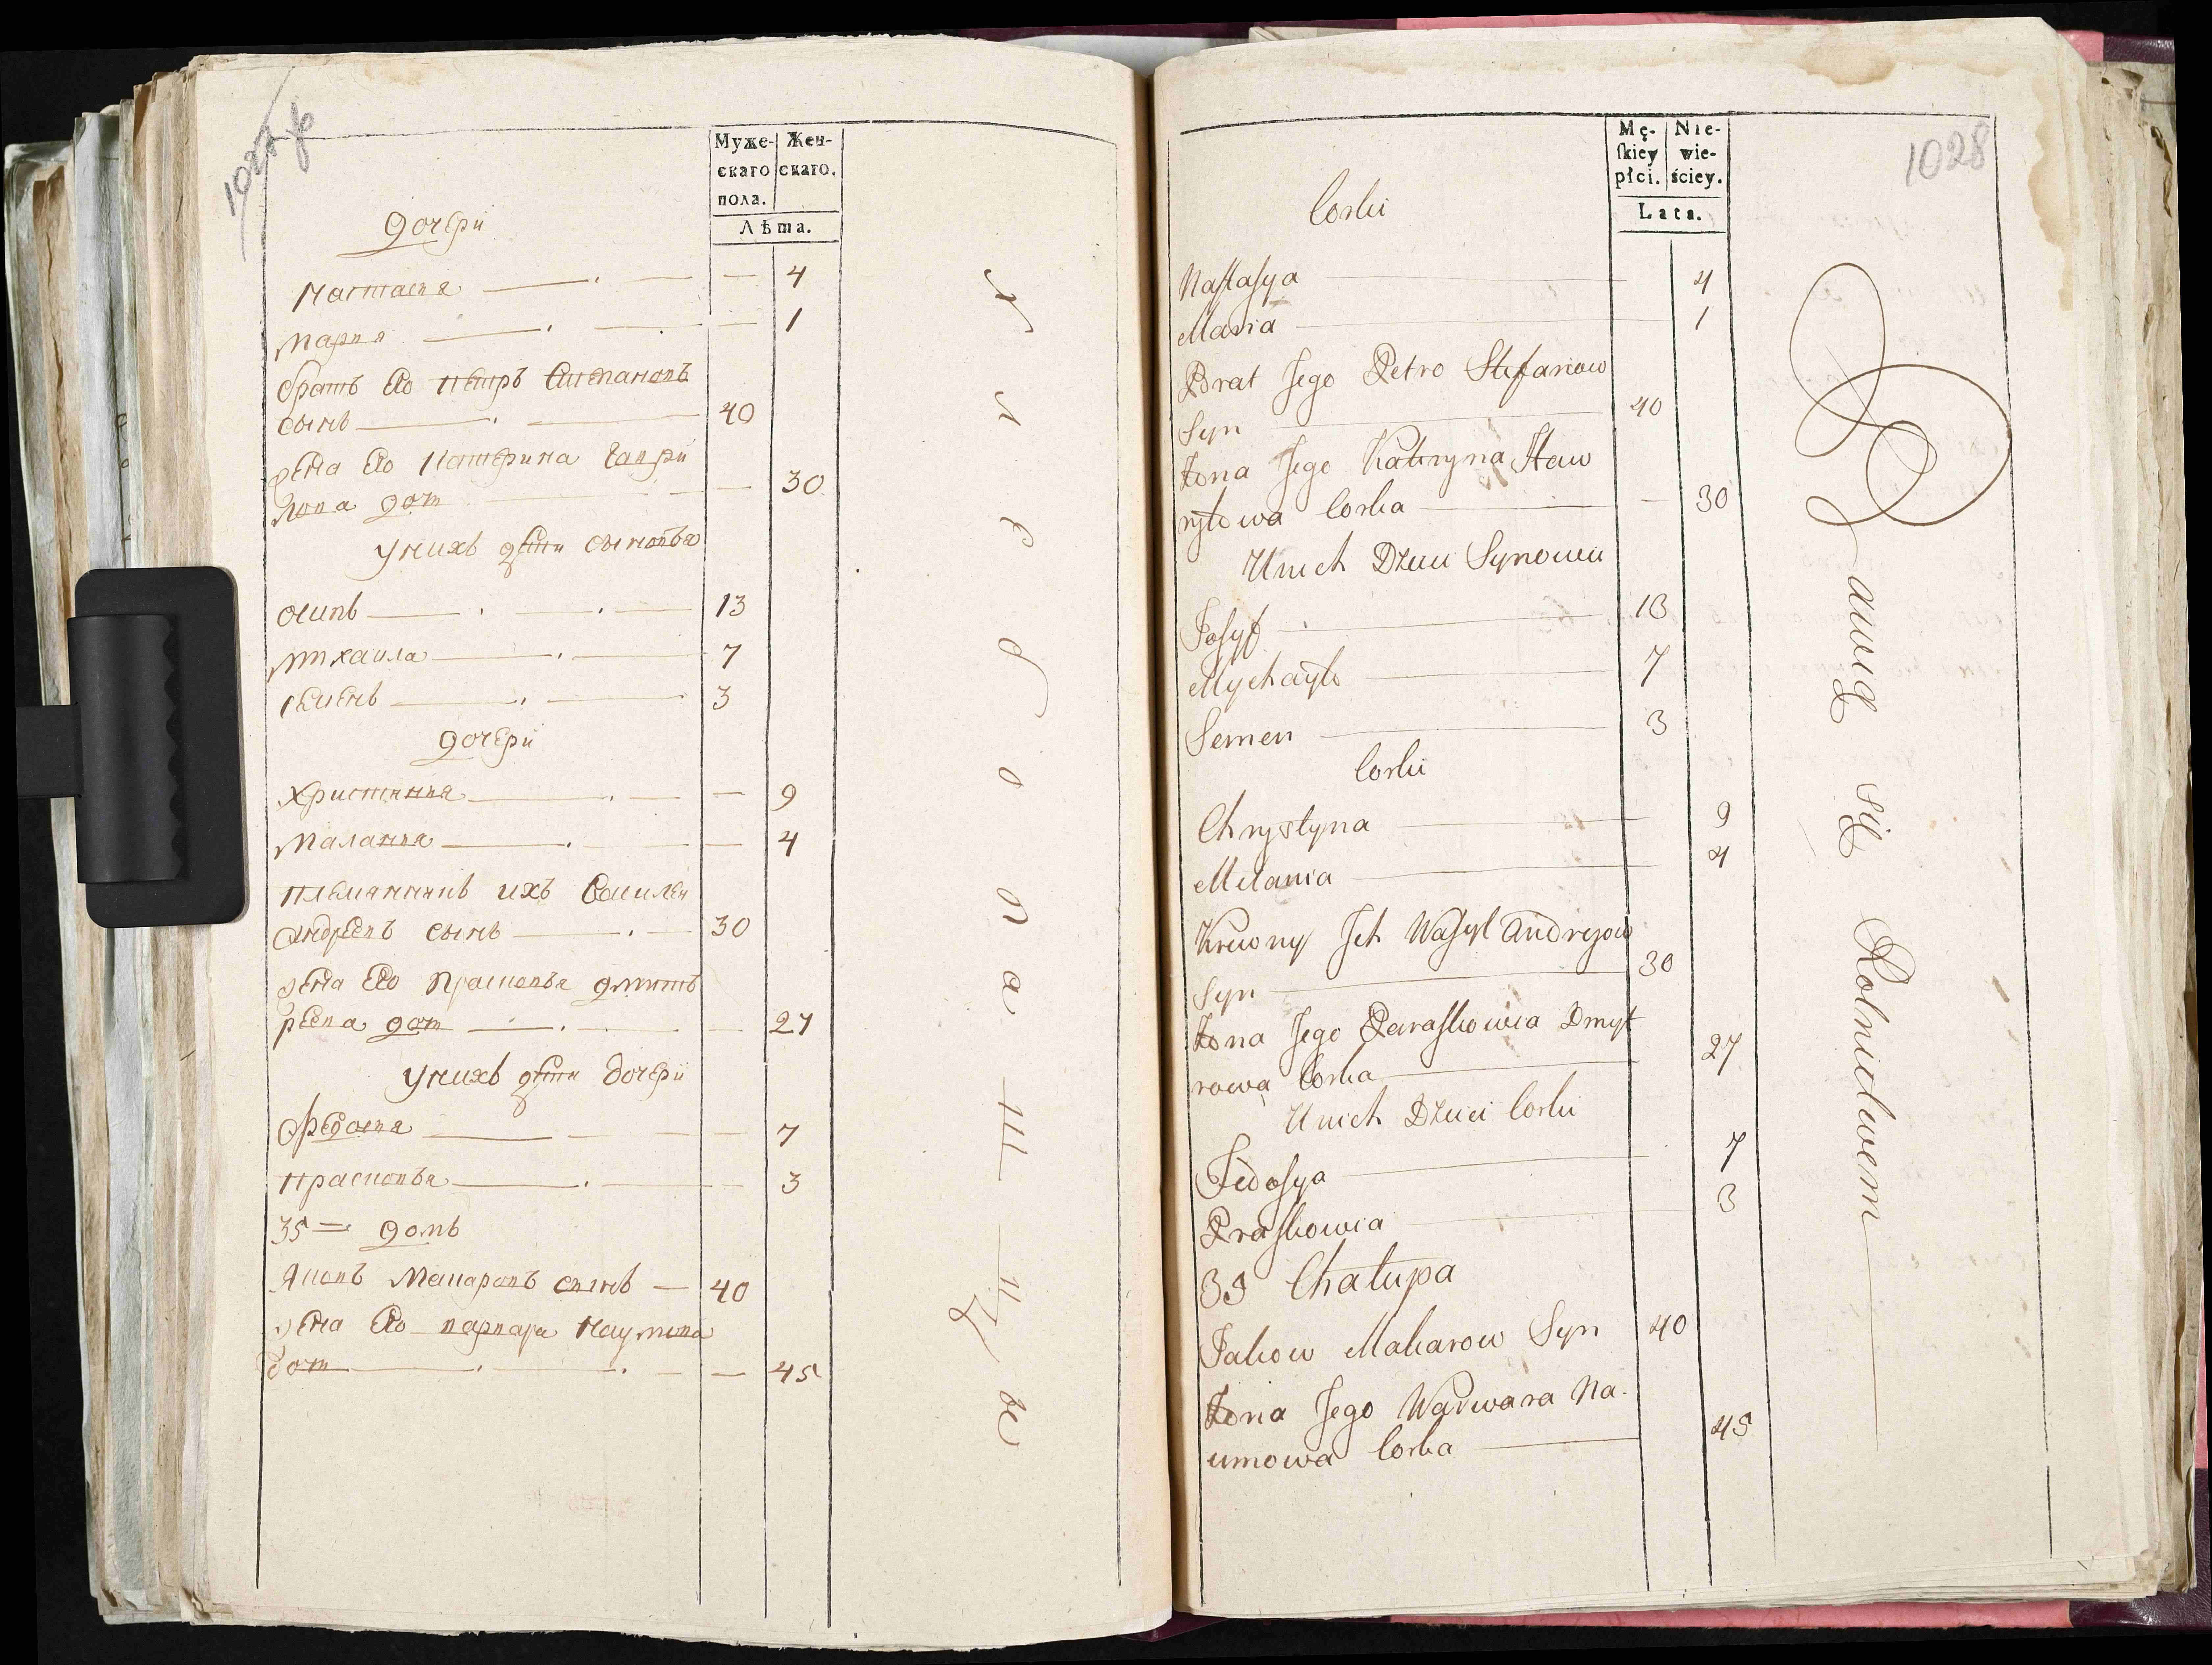 1027 об
Муже-
скаго
пола.
Жен-
скаго.
Лѣта.
дочери
Настасия — — 4
Мария — — 1
братъ Его петръ Степановъ
сынъ — 40
жена Его Катерина Гаври
лова доч — 30
У нихъ дѣти сыновья
осипъ — 13
михаила — 7
семенъ — 3
дочери
христиния — — 9
Малания — — 4
племянникъ ихъ Василей
андреевъ сынъ — 30
жена Его Прасковья дмит
реева доч — — 27
У нихъ дѣти дочери
Федосия — — 7
прасковья — — 3
35 = домъ
Яковъ Макаровъ сынъ — 40
жена Его варвара Наумова
доч — — 45
хлебопашцы
1028
Mę-
ſkiey
płci.
Nie-
wie-
ściey.
Lata.
Corki
Naſtaſya — 4
Maria — 1
Brat Jego Petro Stefanow
Syn — 40
Żona Jego Kateryna Haw
ryłowa Corka — 30
U nich Dzieci Synowie
Josyf — 13
Mychayło — 7
Semen — 3
Corki
Chrystyna — 9
Melania — 4
Krewny Ich Waſyl Andryow
Syn — 30
Żona Jego Paraſkowia Dmyt
rowa Corka — 27
U nich Dzieci Corki
Fedoſya — 7
Praſkowia — 3
35 Chałupa
Jakow Makarow Syn 40
Żona Jego Warwara Na-
umowa Corka — 45
Bawią Się Rolnictwem